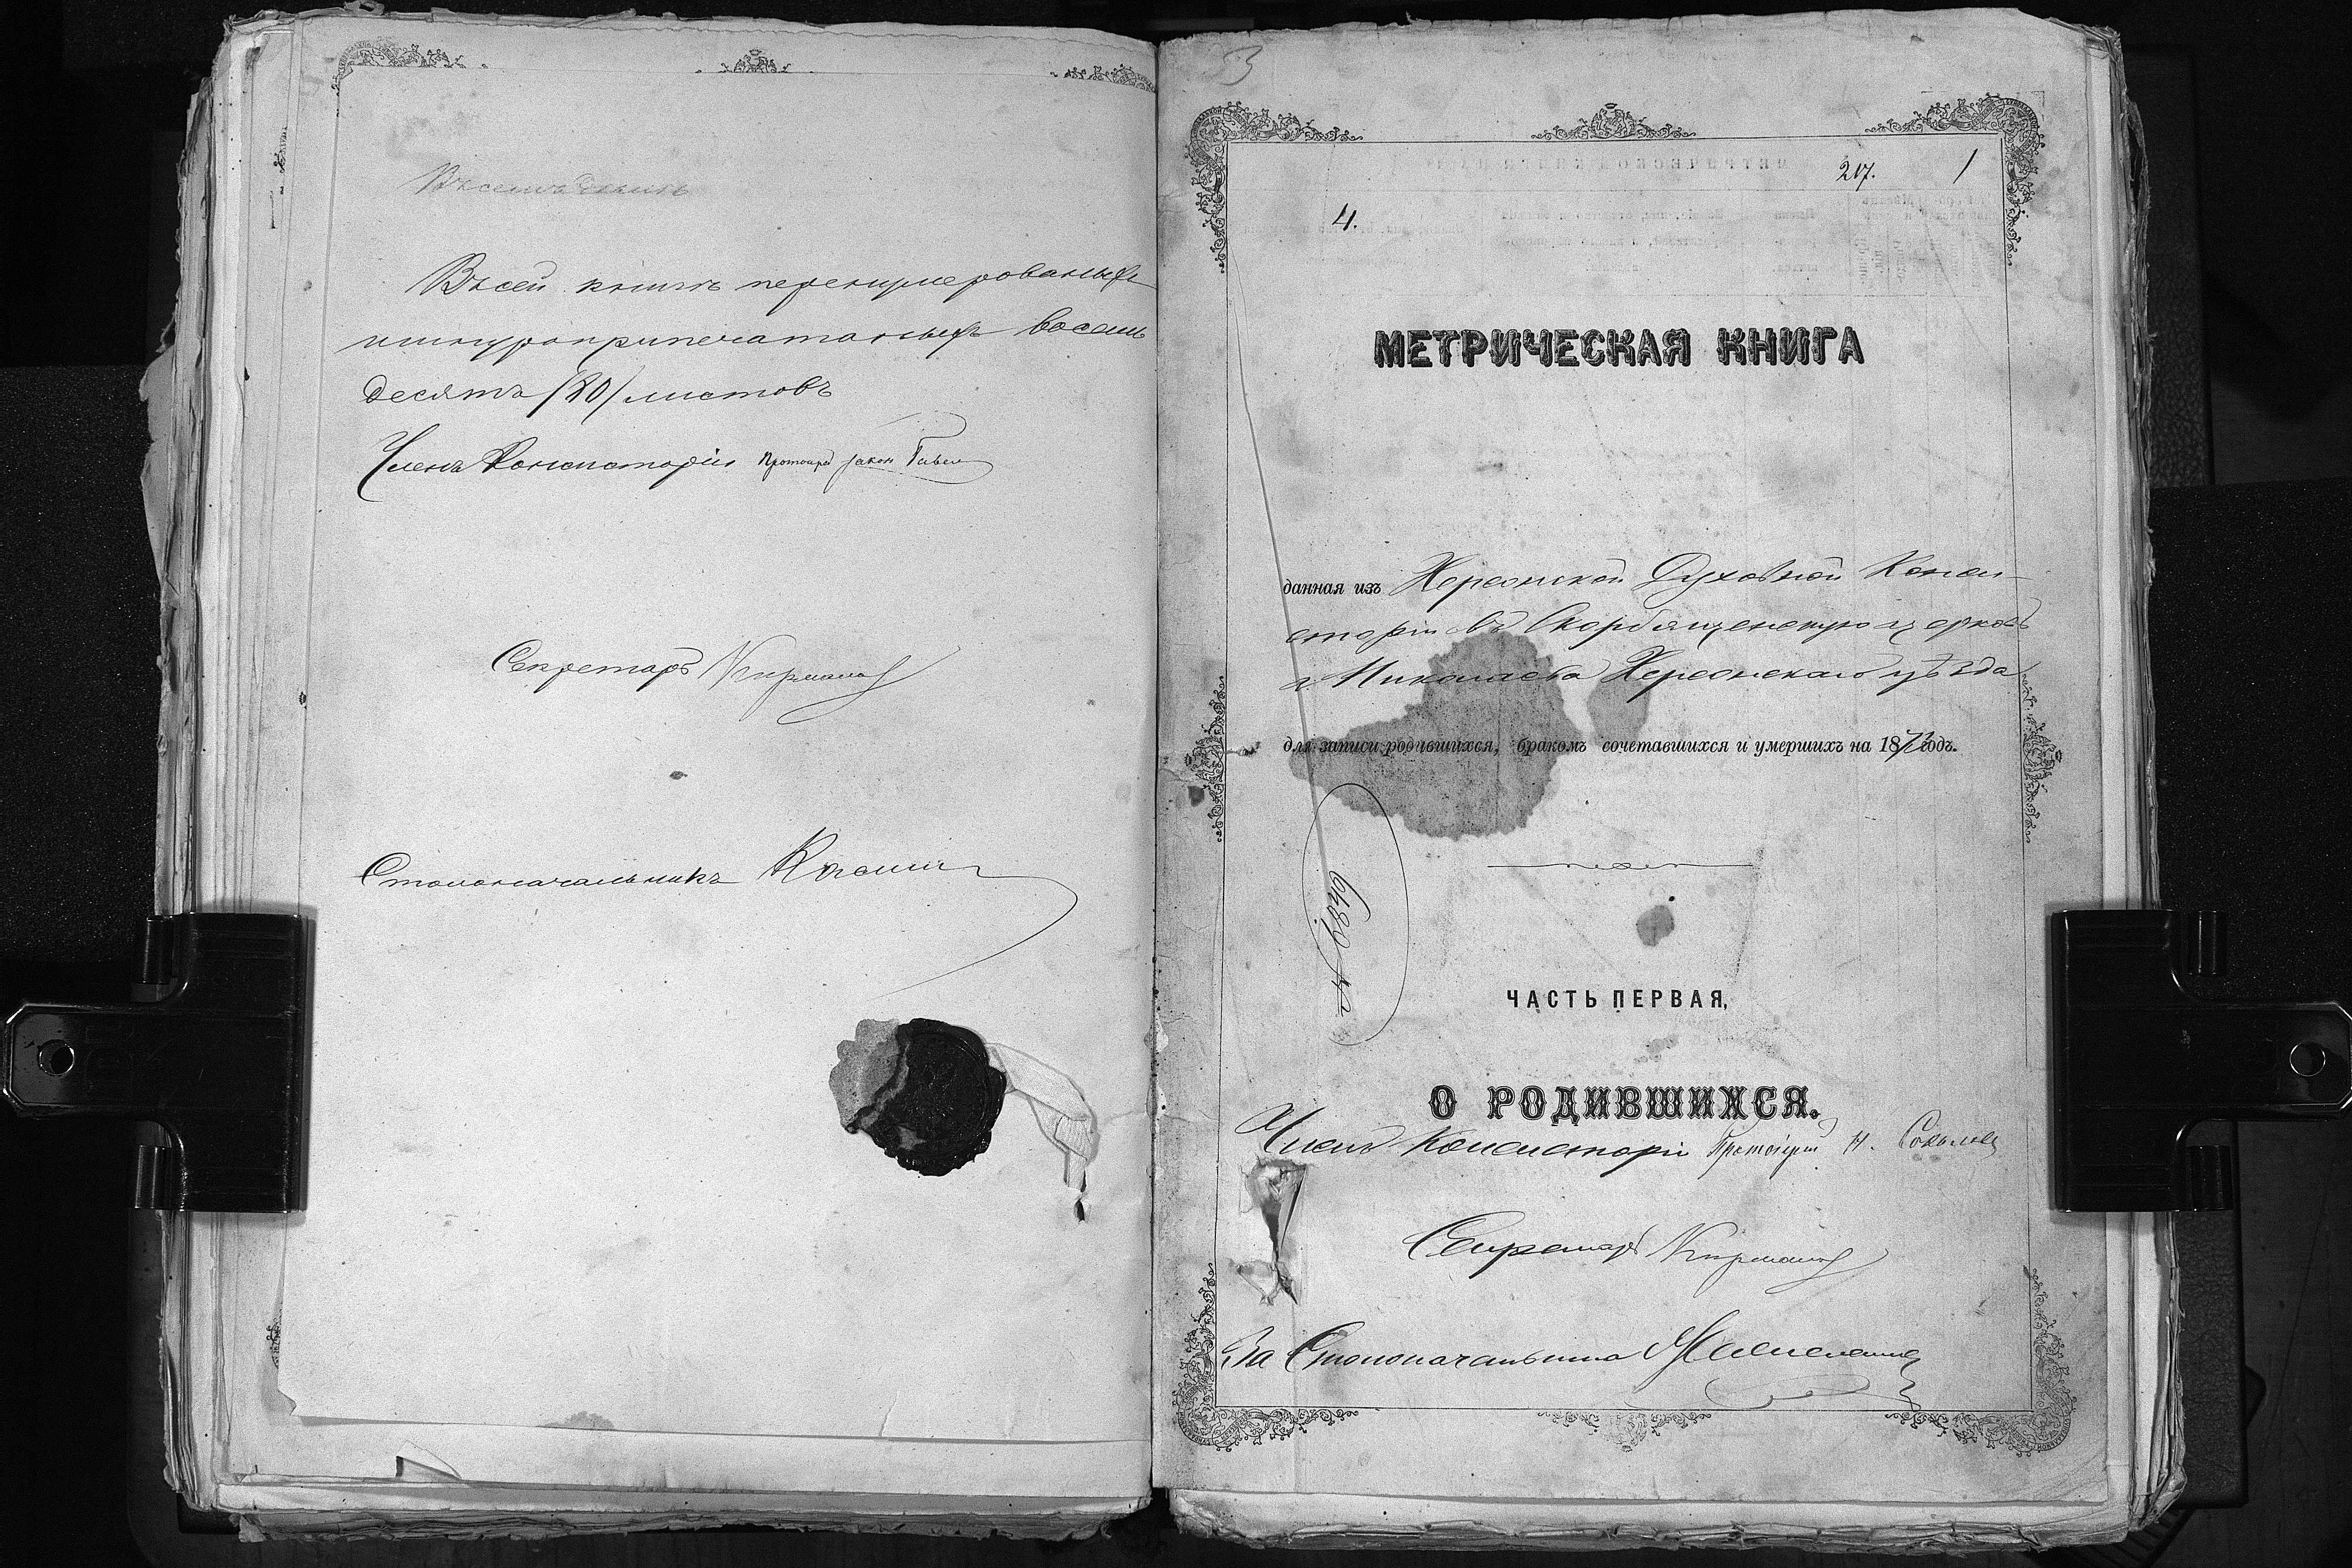 Въ сей книгѣ перенумерованныхъ
и шнуроприпечатаныхъ восемь
десятъ /80/ листовъ
Членъ Консисторіи
Секретарь
Столоначальникъ
53
217. 1
4.
МЕТРИЧЕСКАЯ КНИГА
данная изъ Херсонской Духовной Конси-
сторіи въ Скорбященскую церковь
г. Николаева Херсонскаго уѣзда
для записи родившихся, бракомъ сочетавшихся и умершихъ на 1873 годъ.
№ 6849
ЧАСТЬ ПЕРВАЯ,
О РОДИВШИХСЯ.
Членъ Консисторіи Протоіерей Н. Соколов
Секретарь
За Столоначальника